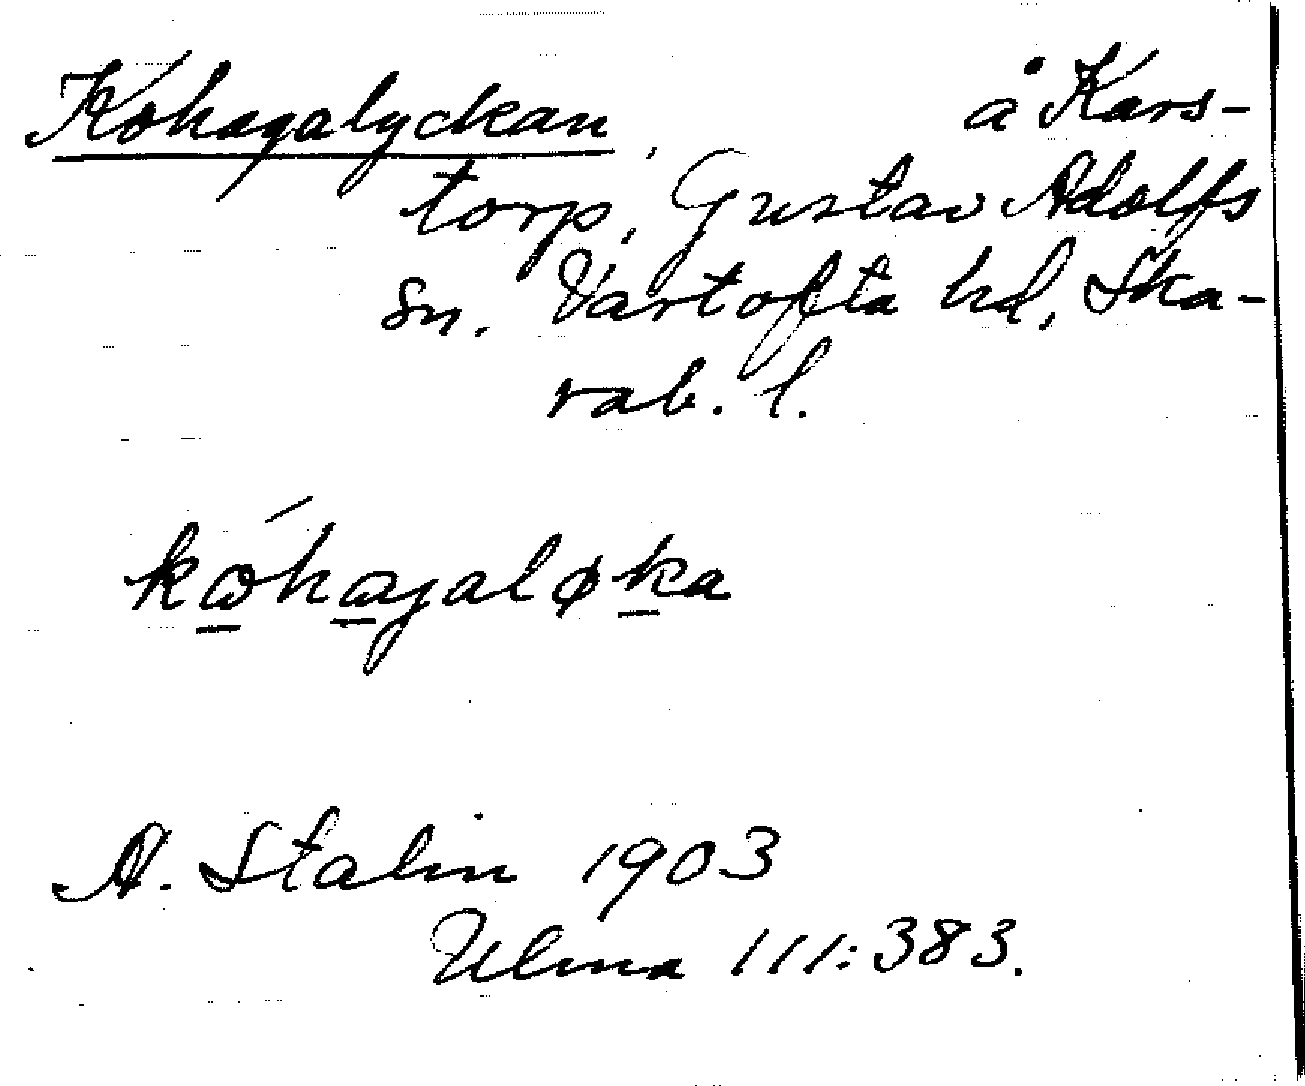 Kohagalyckan, å Kars-
torp, Gustav Adolfs
sn. Vartofta hd, Ska-
rab. l.
kωhagaløka
A. Stalin 1903
Ulma 111:383.